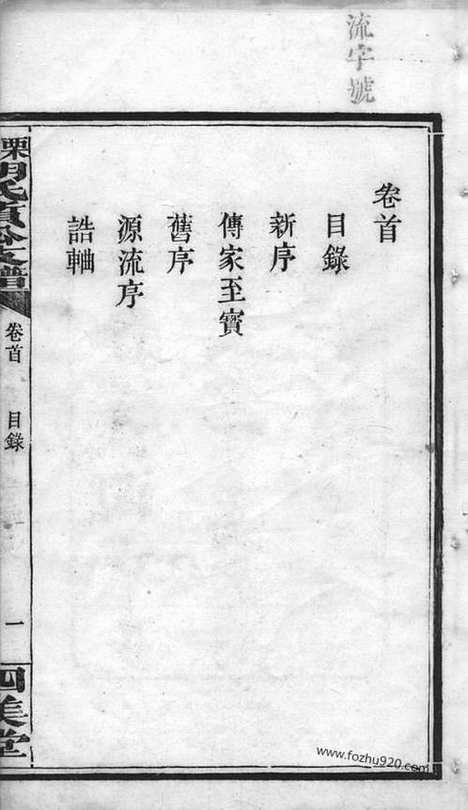 流字號
卷首
目錄
新序
傳家至寶
舊序
源流序
誥軸
栗
支譜
卷首
目錄
一
四美堂
www.fozhu920.com